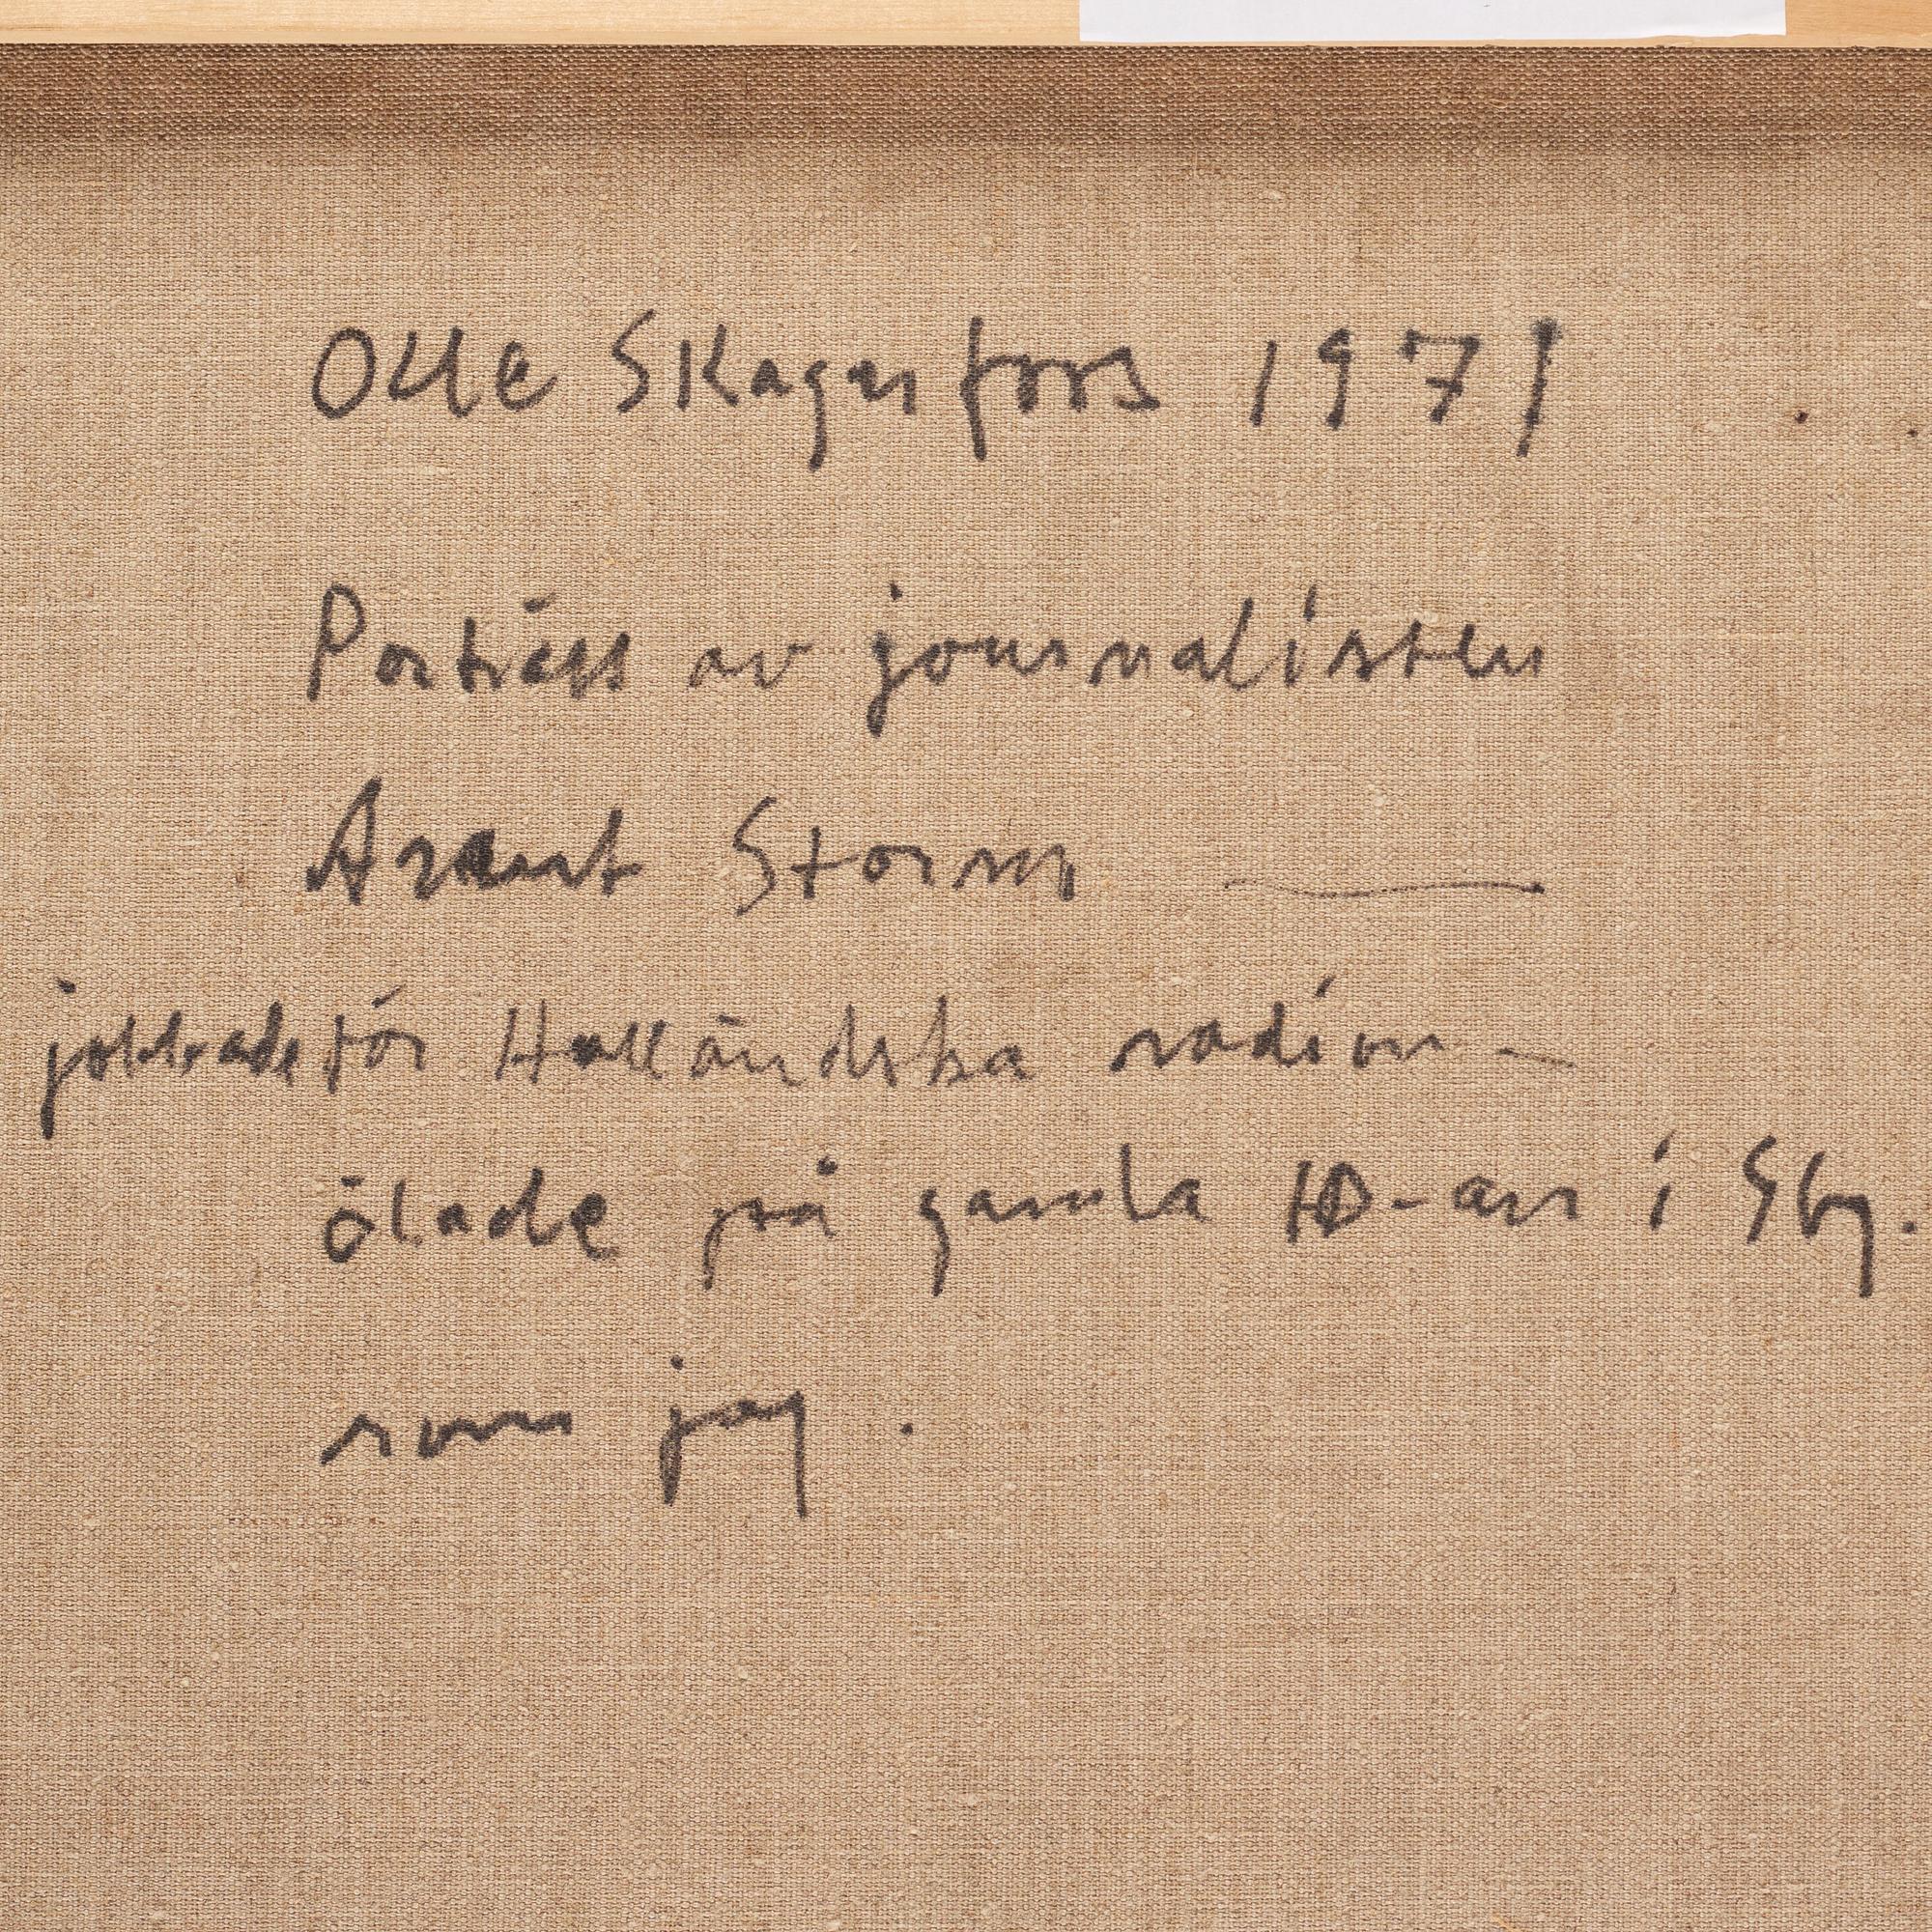 Olle Skagerfors 1971
Porträtt av journalisten
Storm
jobbade för Holländska radion –
ölade på gamla HD-an i Gbg.
som jag.